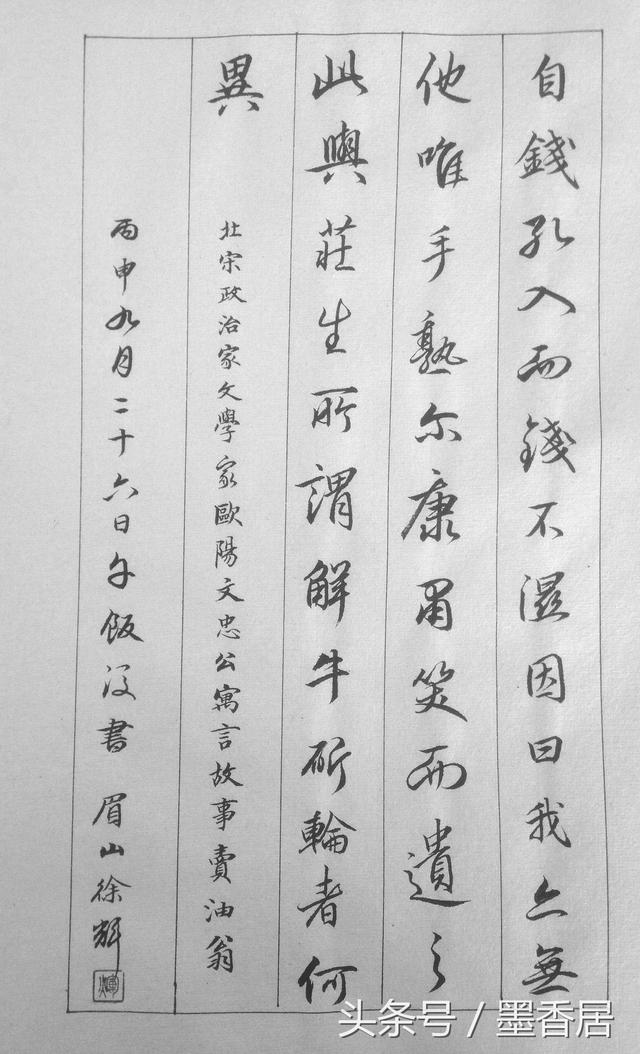 自錢孔入而錢不濕因曰我亦無
他唯手熟尔康肅笑而遣之
此與莊生所謂解牛斫輪者何
異
北宋政治家文學家歐陽文忠公寓言故事賣油翁
丙申九月二十六日午飯後書 眉山徐輝
頭条号 / 墨香居